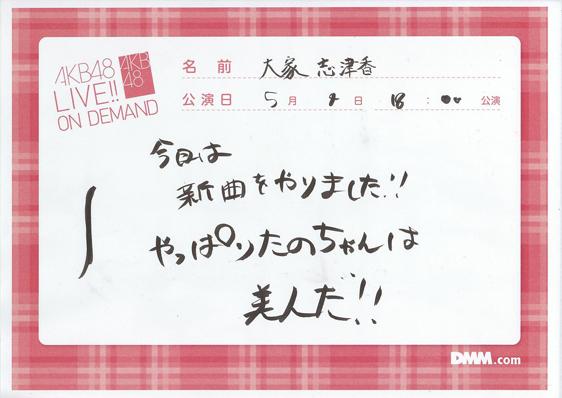 AKB48
LIVE!!
ON DEMAND
AKB
48
名前 大家 志津香
公演日 5月 8日 18:00 公演
今日は
新曲をやりました!!
やっぱりたのちゃんは
美人だ!!
DMM.com